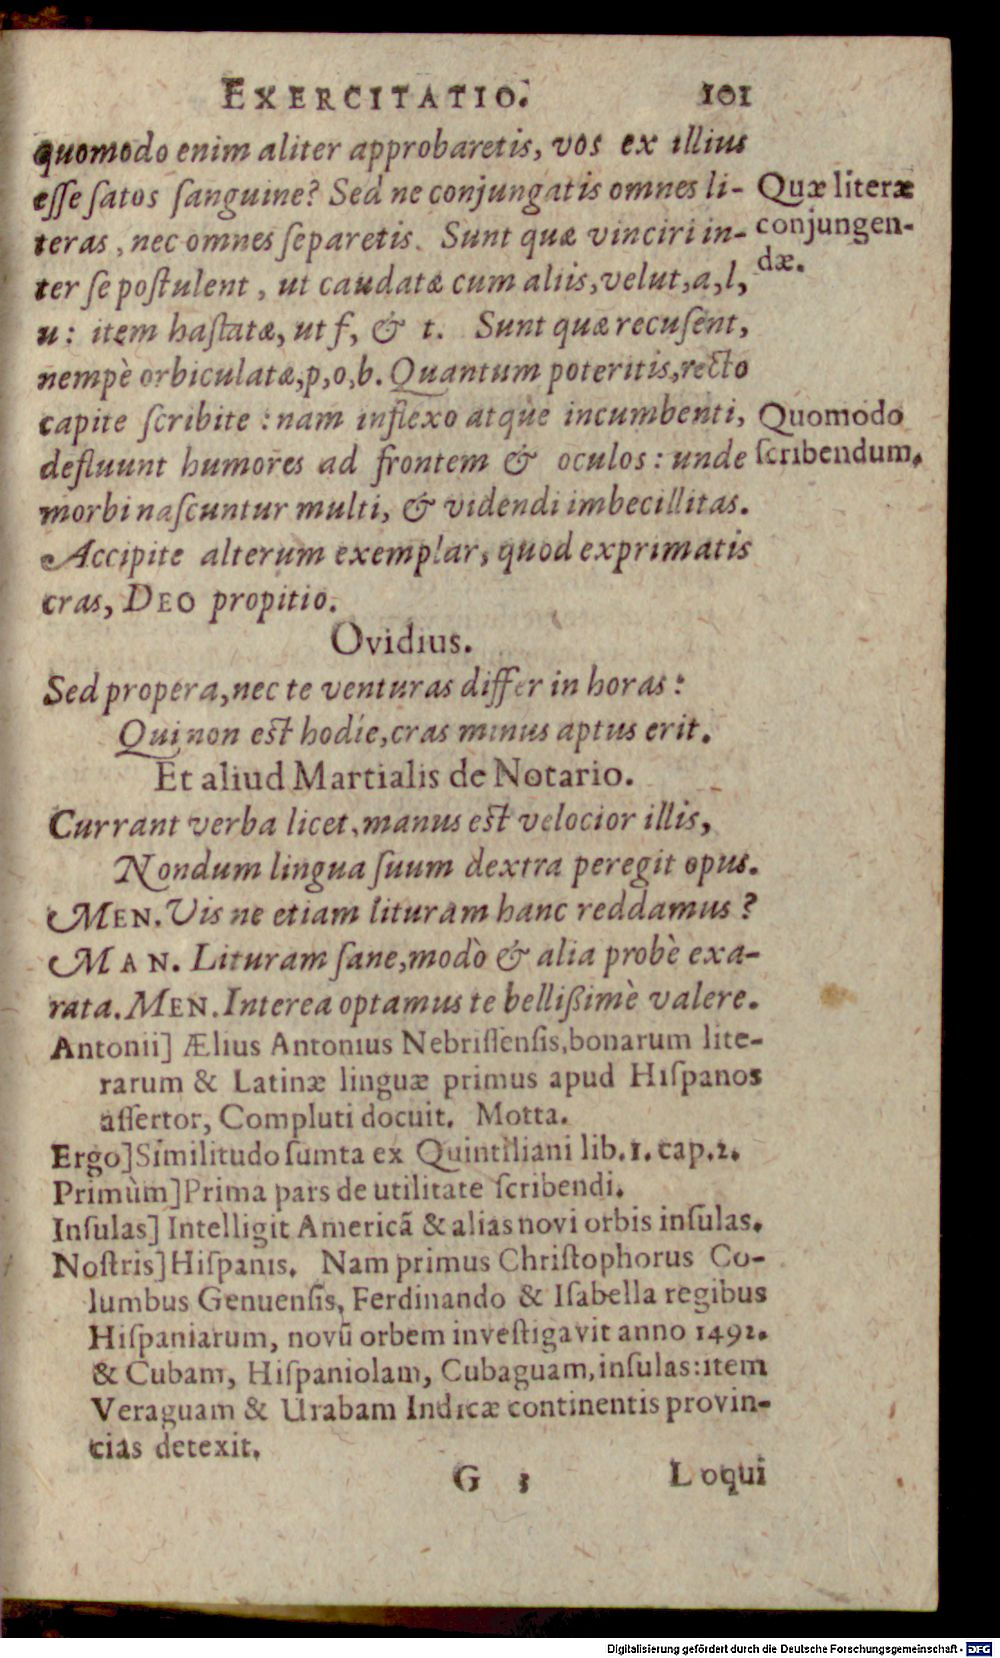 EXERCITATIO. 101
quomodo enim aliter approbaretis, vos ex illius
esse satos sanguine? Sed ne conjungatis omnes li-
teras, nec omnes separetis. Sunt quæ vinciri in-
ter se postulent, ut caudatæ cum aliis, velut, a, l,
u: item hastatæ, ut f, & t. Sunt quæ recusent,
nempè orbiculatæ, p, o, b. Quantum poteritis, recto
capite scribite: nam inflexo atque incumbenti,
defluunt humores ad frontem & oculos: unde
morbi nascuntur multi, & videndi imbecillitas.
Accipite alterum exemplar, quod exprimatis
cras, DEO propitio.
Quæ literæ
conjungen-
dæ.
Quomodo
scribendum.
Ovidius.
Sed propera, nec te venturas differ in horas:
Qui non est hodie, cras minus aptus erit.
Et aliud Martialis de Notario.
Currant verba licet, manus est velocior illis,
Nondum lingua suum dextra peregit opus.
MEN. Vis ne etiam lituram hanc reddamus?
MAN. Lituram sane, modò & alia probè exa-
rata. MEN. Interea optamus te bellißimè valere.
Antonii] Ælius Antonius Nebrissensis, bonarum lite-
rarum & Latinæ linguæ primus apud Hispanos
assertor, Compluti docuit. Motta.
Ergo] Similitudo sumta ex Quintiliani lib. 1. cap. 2.
Primùm] Prima pars de utilitate scribendi.
Insulas] Intelligit Americã & alias novi orbis insulas.
Nostris] Hispanis. Nam primus Christophorus Co-
lumbus Genuensis, Ferdinando & Isabella regibus
Hispaniarum, novũ orbem investigavit anno 1492.
& Cubam, Hispaniolam, Cubaguam, insulas: item
Veraguam & Urabam Indicæ continentis provin-
cias detexit.
G 3 Loqui
Digitalisierung gefördert durch die Deutsche Forschungsgemeinschaft - DFG